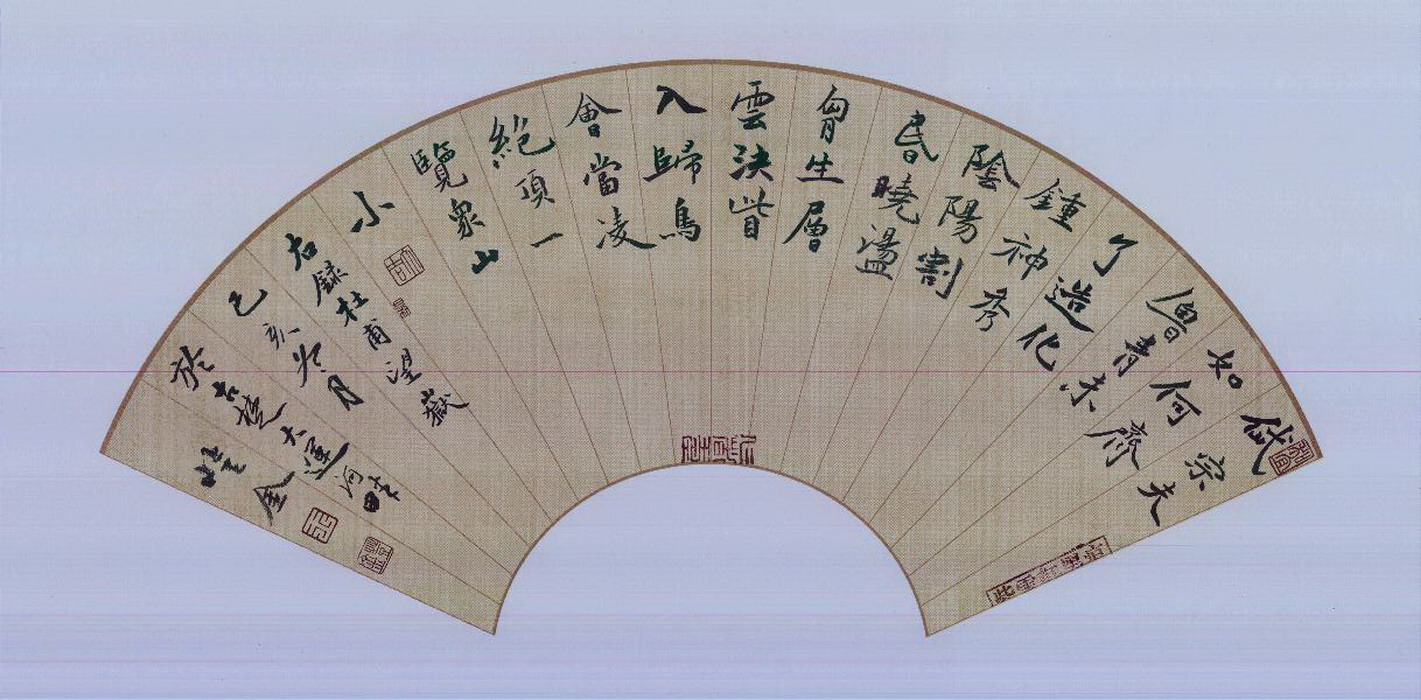 岱宗夫
如何齊
魯青未
了造化
鍾神秀
陰陽割
昏曉盪
胷生層
雲決眥
入歸鳥
會當凌
絕頂一
覽眾山
小
右錄杜甫望嶽
己亥冬月
於古楚大運河畔
金